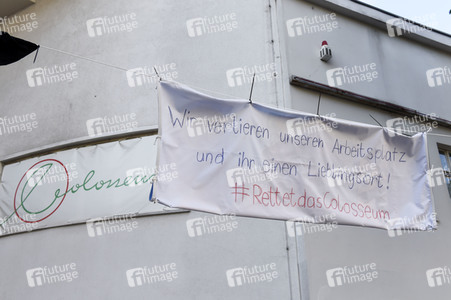 Wir verlieren unseren Arbeitsplatz
und ihr einen Lieblingsort!
#RettetdasColosseum
Colosseum
future
image